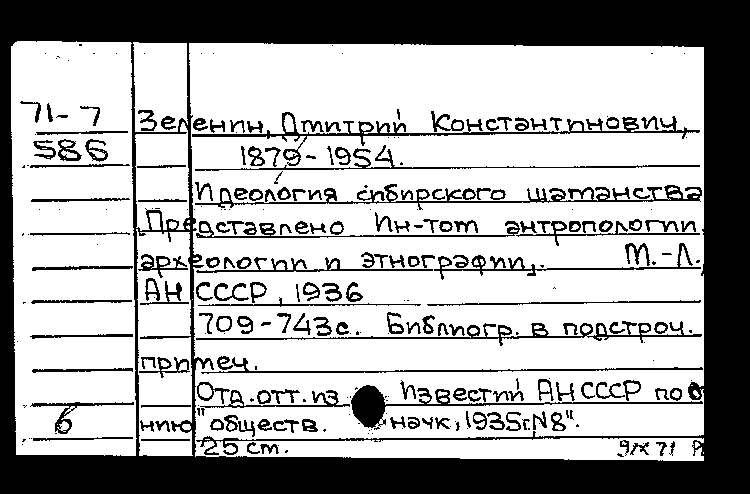 71-7 Зеленин, Дмитрий Константинович,
586 1879-1954.
Идеология сибирского шаманства
[Представлено Ин-том антропологии,
археологии и этнографии]. М.-Л.,
АН СССР, 1936
709-743с. Библиогр. в подстроч.
примеч.
Отд. отт. из "Известий АН СССР по о
6 нию обществ. наук, 1935г, N8".
25 см. 9/IX 71